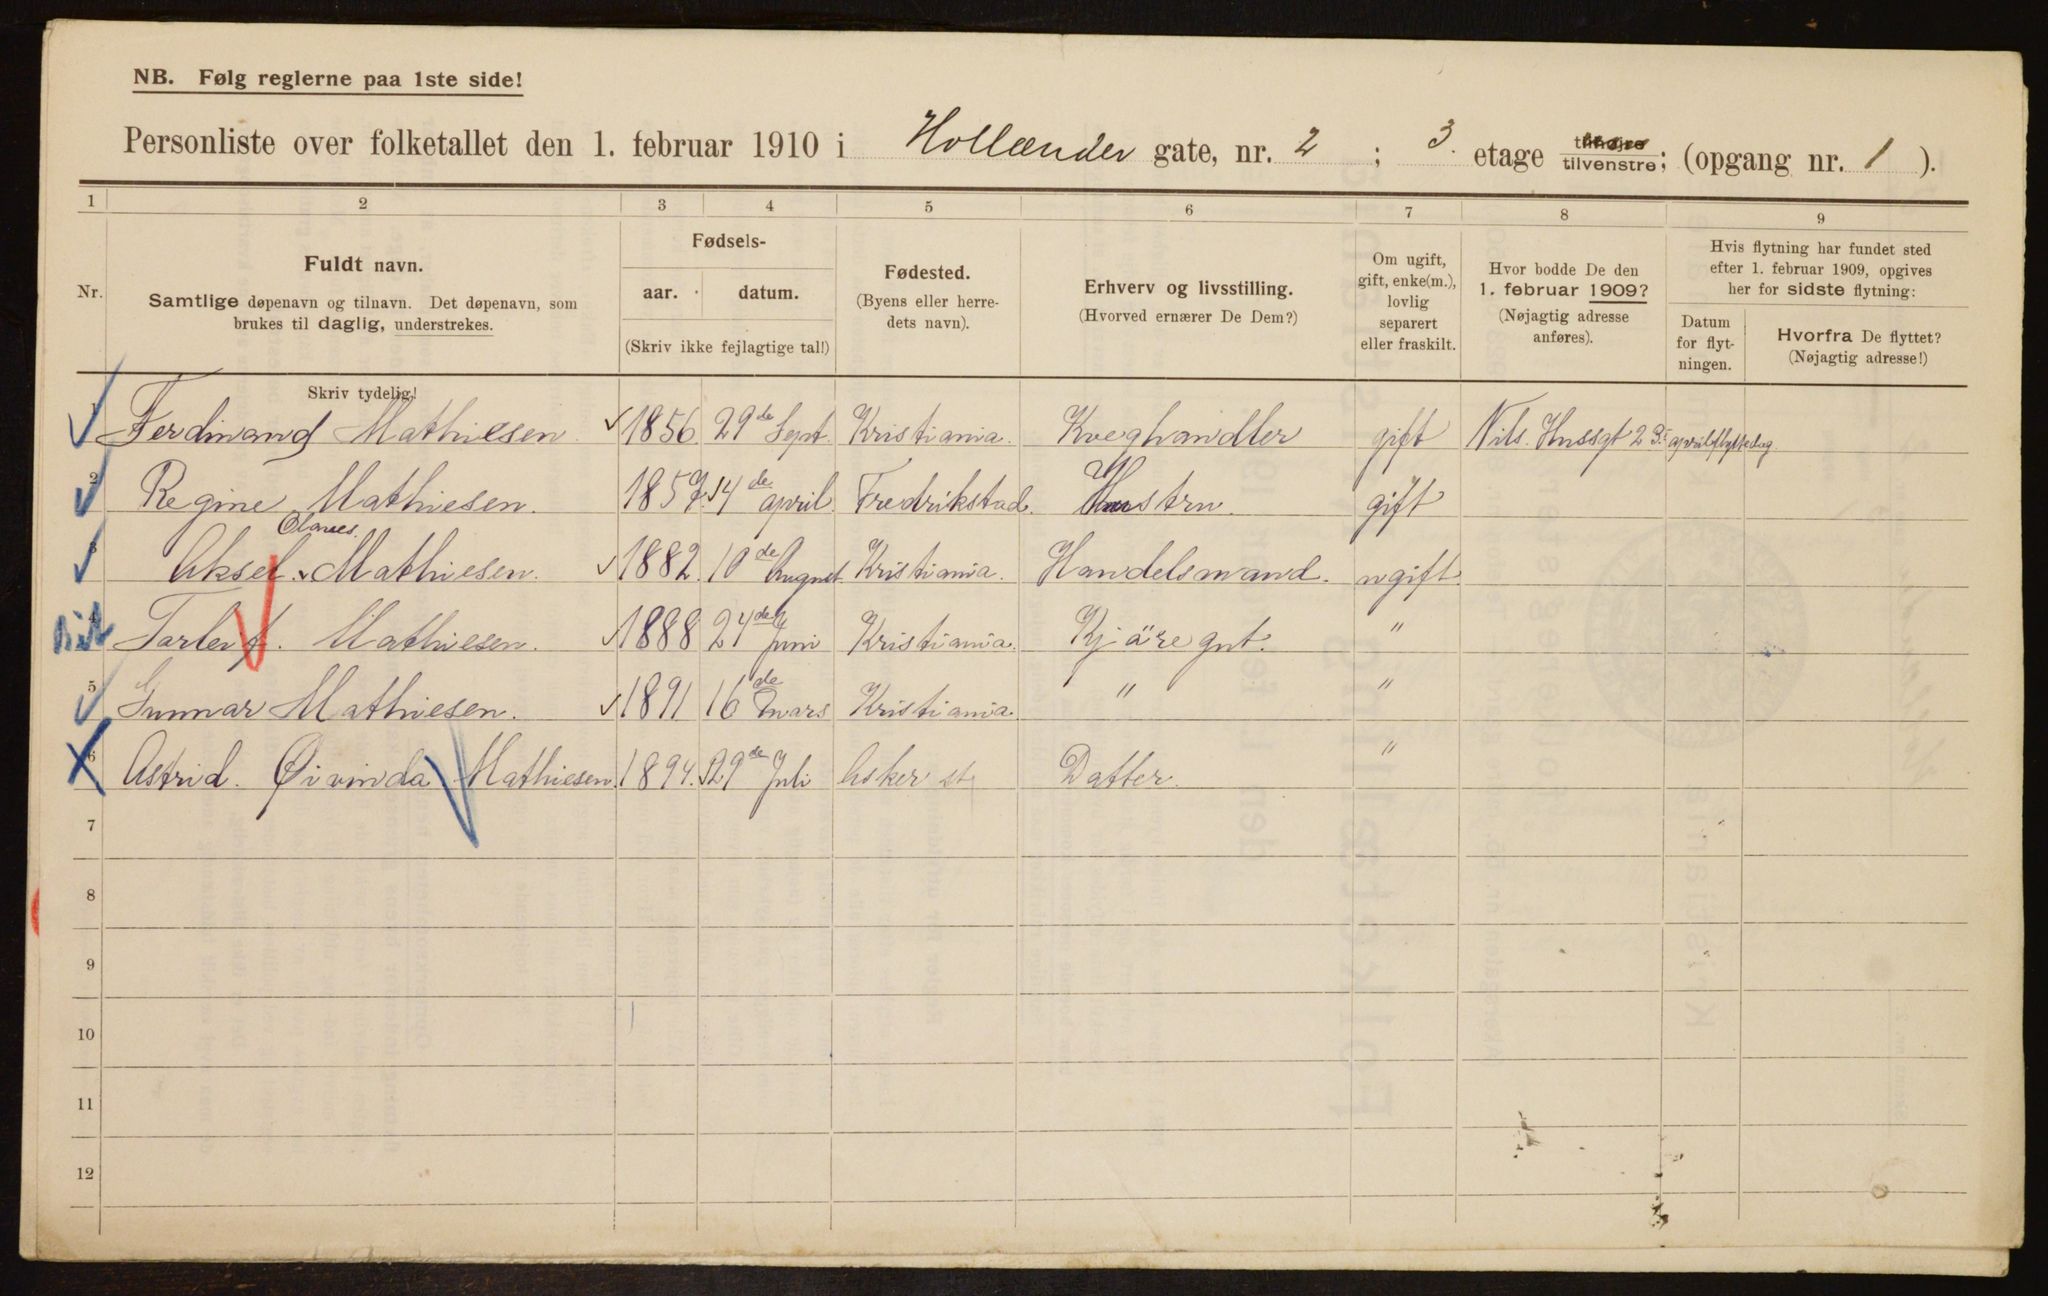 NB. Følg reglerne paa 1ste side!
Personliste over folketallet den 1. februar 1910 i Hollænder gate, nr. 2 ; 3. etage tilvenstre; (opgang nr. 1 ).
1 2 3 4 5 6 7 8 9
Nr.
Fuldt navn.
Samtlige døpenavn og tilnavn. Det døpenavn, som
brukes til daglig, understrekes.
Skriv tydelig!
Fødsels-
aar. datum.
(Skriv ikke fejlagtige tal!)
Fødested.
(Byens eller herre-
dets navn).
Erhverv og livsstilling.
(Hvorved ernærer De Dem?)
Om ugift,
gift, enke(m.),
lovlig
separert
eller fraskilt.
Hvor bodde De den
1. februar 1909?
(Nøjagtig adresse
anføres).
Hvis flytning har fundet sted
efter 1. februar 1909, opgives
her for sidste flytning:
Datum
for flyt-
ningen.
Hvorfra De flyttet?
(Nøjagtig adresse!)
1 Ferdinand Mathiesen. 1856 29de Sept Kristiania. Kveghandler gift Nils Hussgt 2 aprilflyttedag
2 Regine Mathiesen. 1857 14de april Fredrikstad. Hustru. gift
Olaves.
3 Aksel. Mathiesen. 1882. 10de August Kristiania. Handelsmand. ugift
4 Torleif. Mathiesen. 1888 24de Juni Kristiania. Kjäregut. "
5 Gunnar Mathiesen. 1891 16de Mars Kristiania. " "
6 Astrid. Øivinda Mathiesen. 1894. 29de Juli Asker st Datter. "
7
8
9
10
11
12